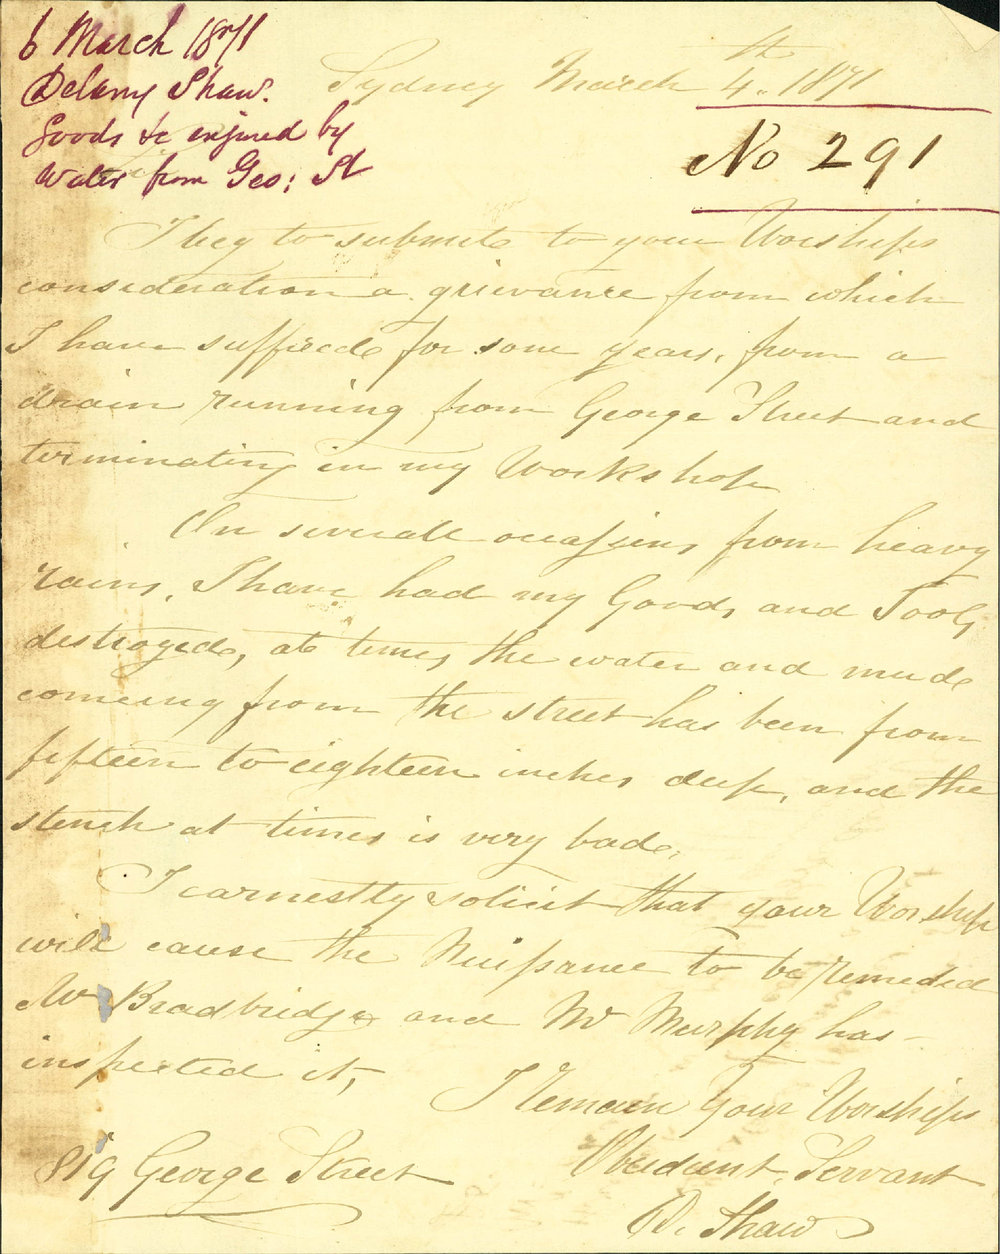 6 March 1871
Delany Shaw.
Goods &c injured by
Water from Geo: St
Sydney March 4th. 1871
No 291
I beg to submite to your Worships
consideration a grievance from which
I have suffrede for some years, from a
drain running from George Street and
terminating in my Workshop
On severall occasions from heavy
rains, I have had my Goods and Tools
destroyede, at times the water and mude
comeing from the street has been from
fifteen to eighteen inches deep, and the
stench at times is very bade,
I earnestly solicit that your Worship
will cause the Nuisance to be remeded
Mr Bradbridge and Mr Murphy has
inspected it,
I Remain Your Worships
Obediant Servant
D. Shaw
819 George Street